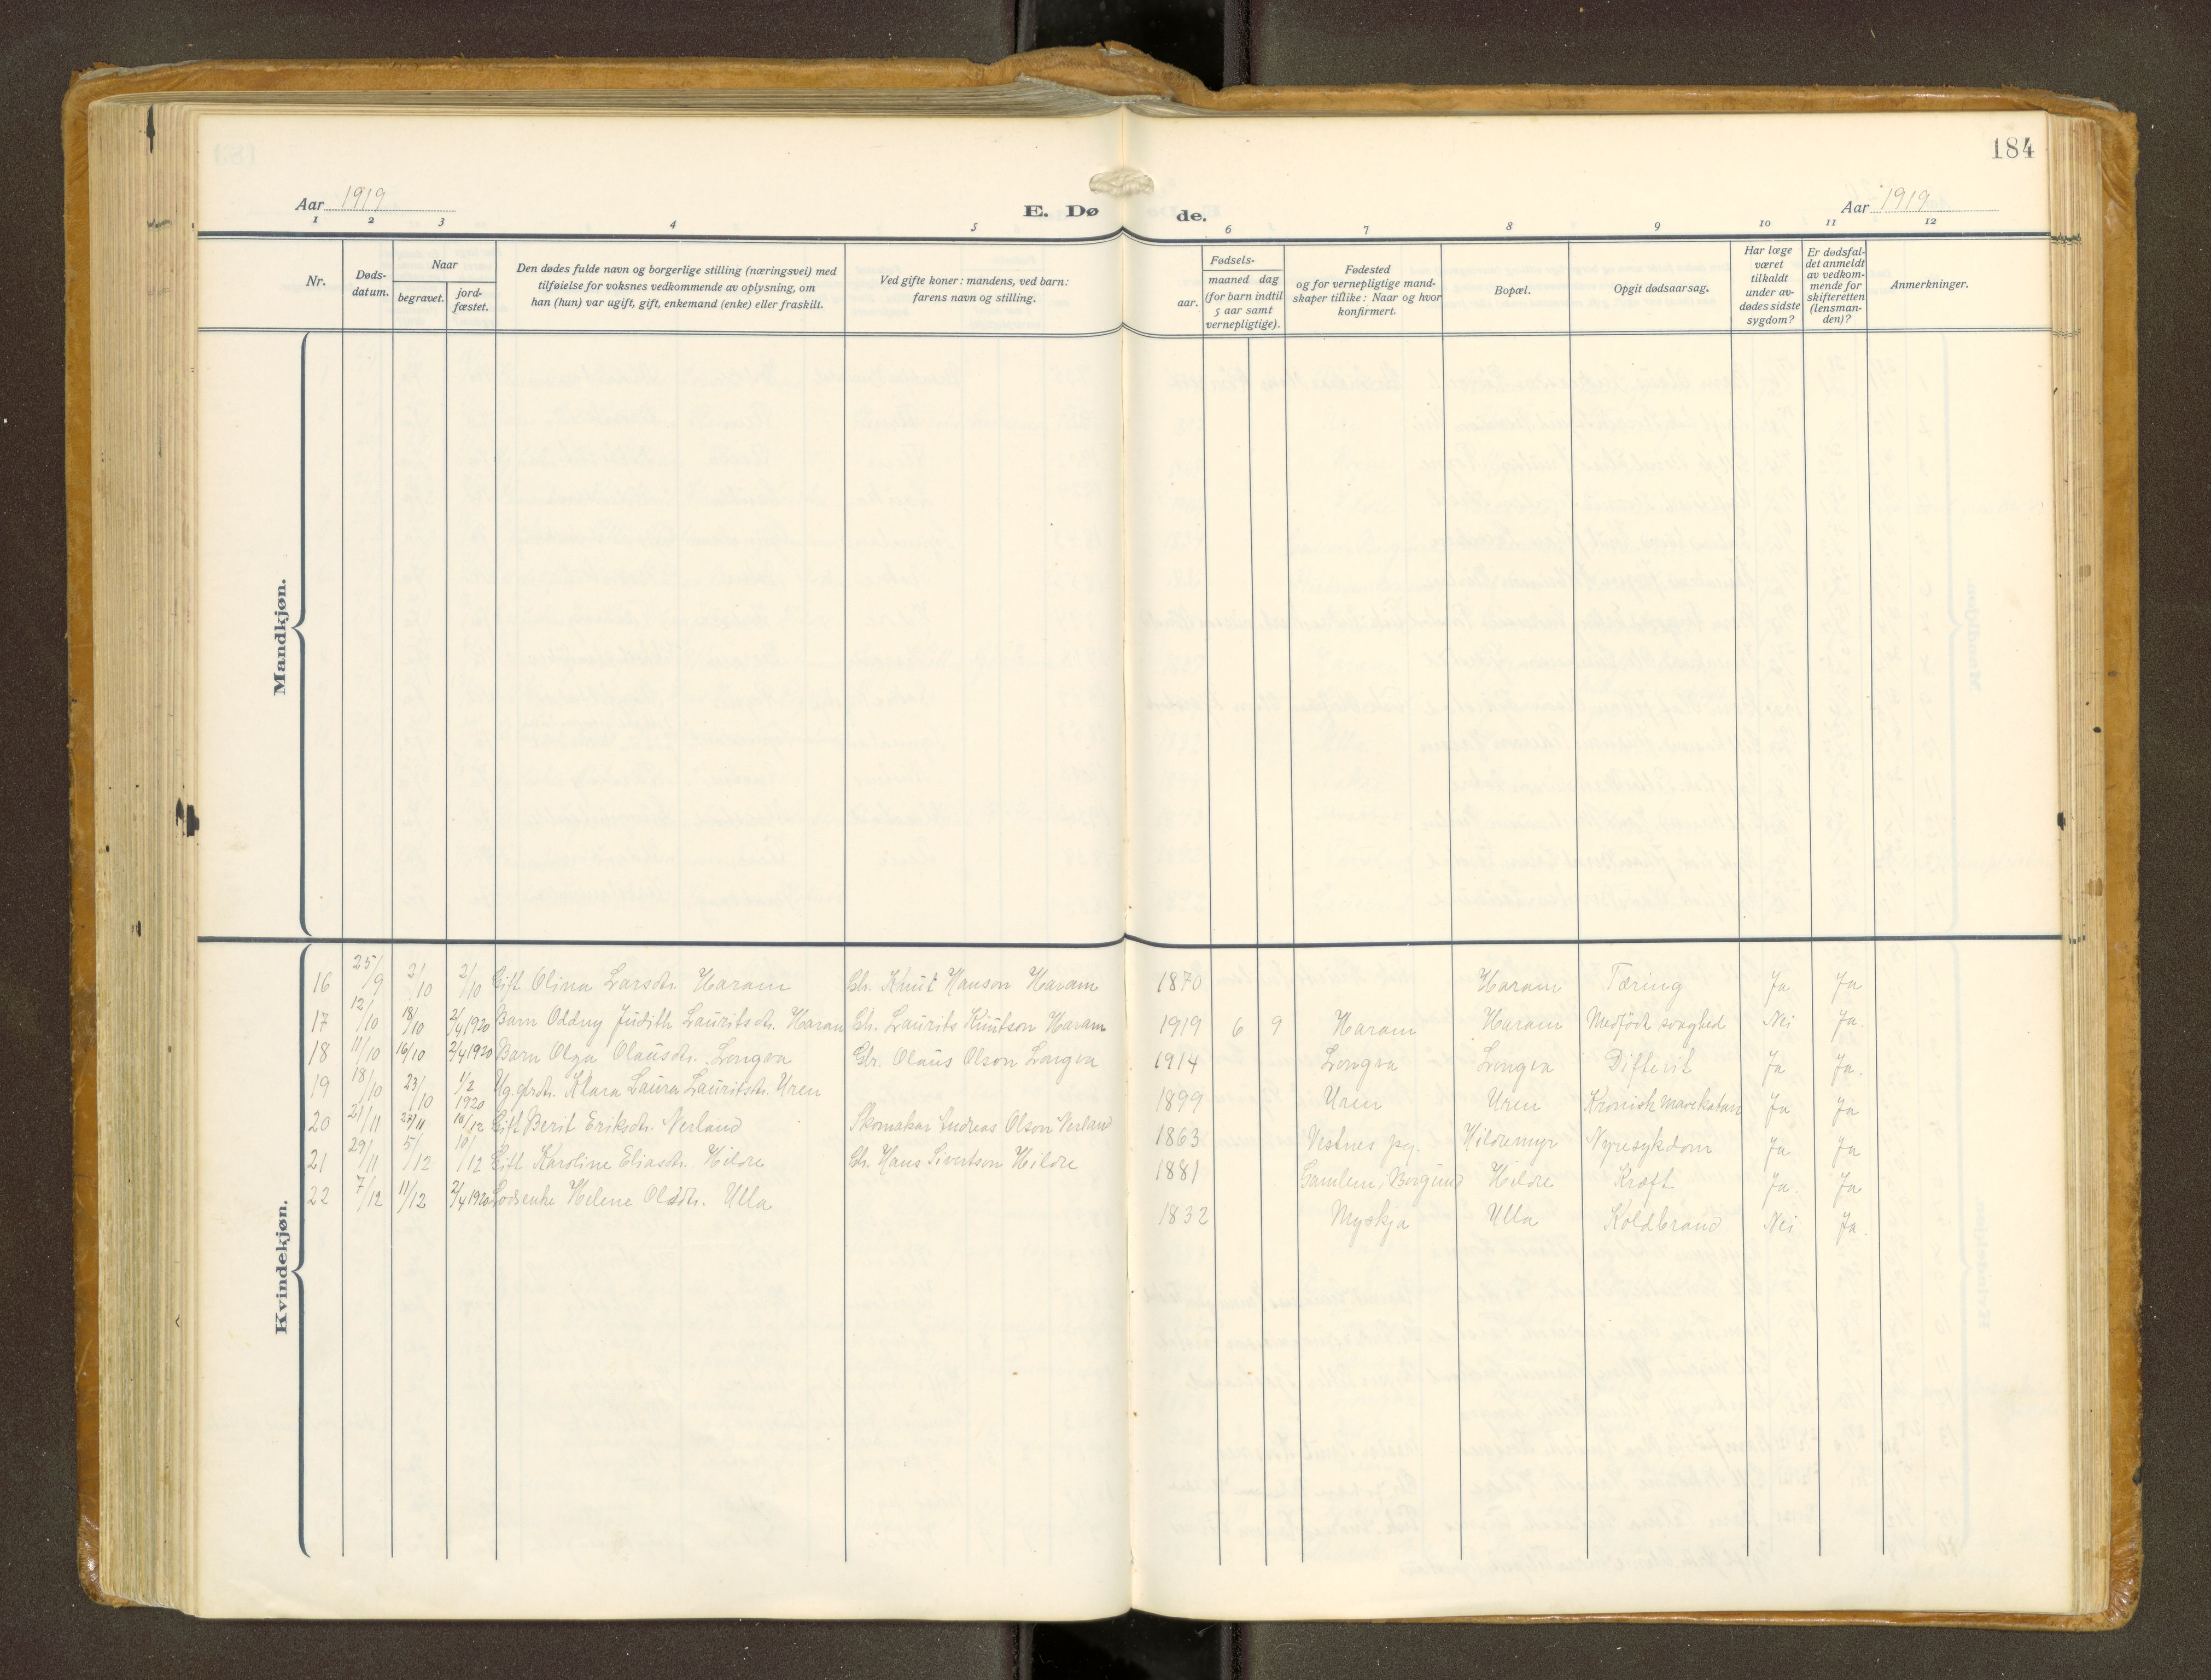 184
Aar 1919
E. Døde.
Aar 1919
1 2 3 4 5 6 7 8 9 10 11 12
Nr.
Døds-
datum.
Naar
begravet.
jord-
fæstet.
Den dødes fulde navn og borgerlige stilling (næringsvei) med
tilføielse for voksnes vedkommende av oplysning, om
han (hun) var ugift, gift, enkemand (enke) eller fraskilt.
Ved gifte koner: mandens, ved barn:
farens navn og stilling.
Fødsels-
aar.
maaned dag
(for barn indtil
5 aar samt
vernepligtige).
Fødested
og for vernepligtige mand-
skaper tillike: Naar og hvor
konfirmert.
Bopæl.
Opgit dødsaarsag.
Har læge
været
tilkaldt
under av-
dødes sidste
sygdom?
Er dødsfal-
det anmeldt
av vedkom-
mende for
skifteretten
(lensman-
den)?
Anmerkninger.
Mandkjøn.
Kvindekjøn.
16 25/9 2/10 2/10 Gift Olina Larsdtr. Haram Gbr. Knut Hanson Haram 1870 Haram Tæring Ja Ja
17 12/10 18/10 2/4 1920 Barn Oddny Judith Lauritsdtr. Haram Gbr. Laurits Knutson Haram 1919 6 9 Haram Haram Medfødt svaghed Nei Ja.
18 11/10 16/10 2/4 1920 Barn Olga Olausdtr. Longva Gbr. Olaus Olson Longva 1914 Longva Longva Difterit Ja Ja.
19 18/10 23/10 1/2 1920 Ug. gbrdtr. Klara Laura Lauritsdtr. Uren 1899 Uren Uren Kronisk Ja Ja
20 21/11 27/11 10/12 Gift Berit Eriksdtr. Nerland Skomakar Andreas Olson Nerland 1863 Vestnes pg. Hildremyr Nyresykdom Ja Ja
21 29/11 5/12 10/12 Gift Karoline Eliasdtr. Hildre Gbr. Hans Sivertson Hildre 1881 Gamlem, Borgund Hildre Kræft Ja. Ja
22 7/12 11/12 2/4 1920 Lodsenke Helene Olsdtr. Ulla 1832 Myskja Ulla Koldbrand Nei Ja.